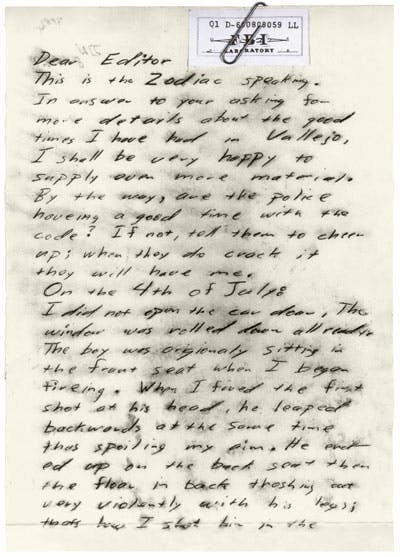 Q1 D-690808059 LL
FBI
LABORATORY
Dear Editor
This is the Zodiac speaking.
In answer to your asking for
more details about the good
times I have had in Vallejo,
I shall be very happy to
supply even more material.
By the way, are the police
haveing a good time with the
code? If not, tell them to cheer
up; when they do crack it
they will have me.
On the 4th of July:
I did not open the car door, The
window was rolled down all ready.
The boy was origionaly sitting in
the front seat when I began
fireing. When I fired the first
shot at his head, he leaped
backwards at the same time
thus spoiling my aim. He end
ed up on the back seat then
the floor in back thashing out
very violently with his legs;
thats how I shot him in the